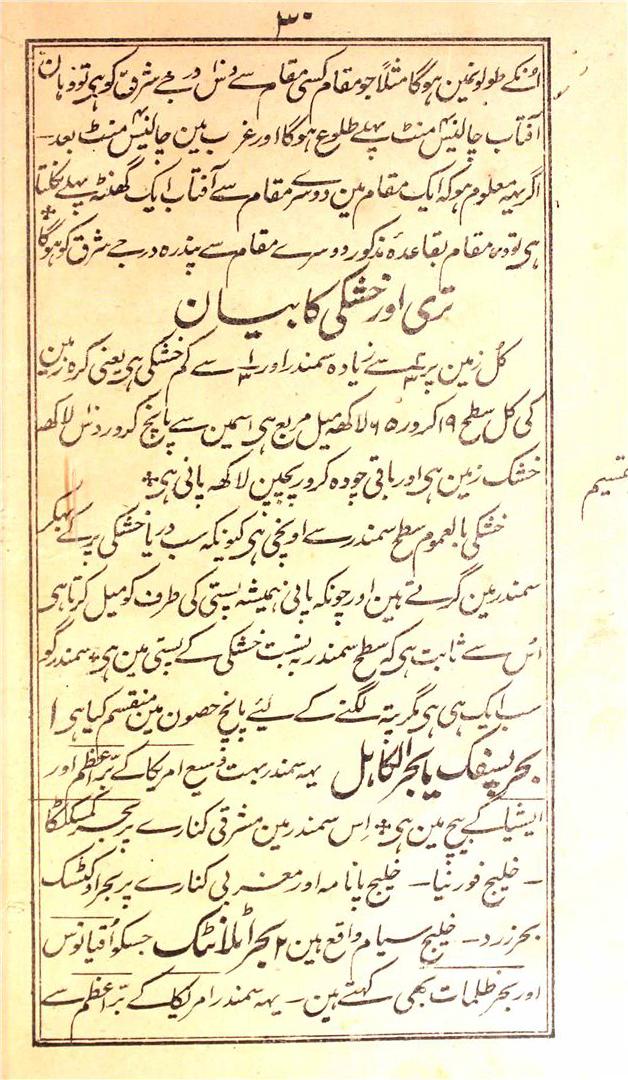 ۳۰
اُنکے طولونمین ہوگا مثلاً جو مقام کسی مقام سے دس درجے شرق کو ہی تو وہان
آفتاب چالیس منٹ پہلے طلوع ہوگا اور غرب مین چالیس منٹ بعد۔
اگر یہہ معلوم ہو کہ ایک مقام مین دوسرے مقام سے آفتاب ایک گھنٹہ پہلے نکلتا
ہی تو وہ مقام بقاعدہ مذکور دوسرے مقام سے پندرہ درجے شرق کو ہوگا
تری اور خشکی کا بیان
کل زمین پر ۲/۳ سے زیادہ سمندر اور ۱/۳ سے کم خشکی ہی یعنی کرہ زمین
کی کل سطح ۱۹ کرور ۶۵ لاکھہ میل مربع ہی اسمین سے پانچ کرور دس لاکھہ
خشک زمین ہی اور باقی چودہ کرور پچپن لاکھہ پانی ہی
خشکی بالعموم سطح سمندر سے اونچی ہی کیونکہ سب دریا خشکی پر کے بہکر
سمندر مین گرتے ہین اور چونکہ پانی ہمیشہ پستی کی طرف کو میل کرتا ہی
اس سے ثابت ہی کہ سطح سمندر بہ نسبت خشکی کے پستی مین ہی۔ سمندر گو
سب ایک ہی ہی مگر پتہ لگنے کے لیئے پانچ حصون مین منقسم کیا ہی ۱
بحر پسفک یا بحر الکاہل یہہ سمندر بہت وسیع امریکا کے برّ اعظم اور
ایشیا کے بیچ مین ہی اِس سمندر مین مشرقی کنارے پر بحر کمسکٹکا
۔ خلیج فورنیا۔ خلیج پانامہ اور مغربی کنارے پر بحر اوکٹسک
بحر زرد۔ خلیج سیام واقع ہین ۲ بحر اٹلانٹک جسکو اُقیانوس
اور بحر ظلمات بھی کہتے ہین۔ یہہ سمندر امریکا کے برّ اعظم سے
تقسیم